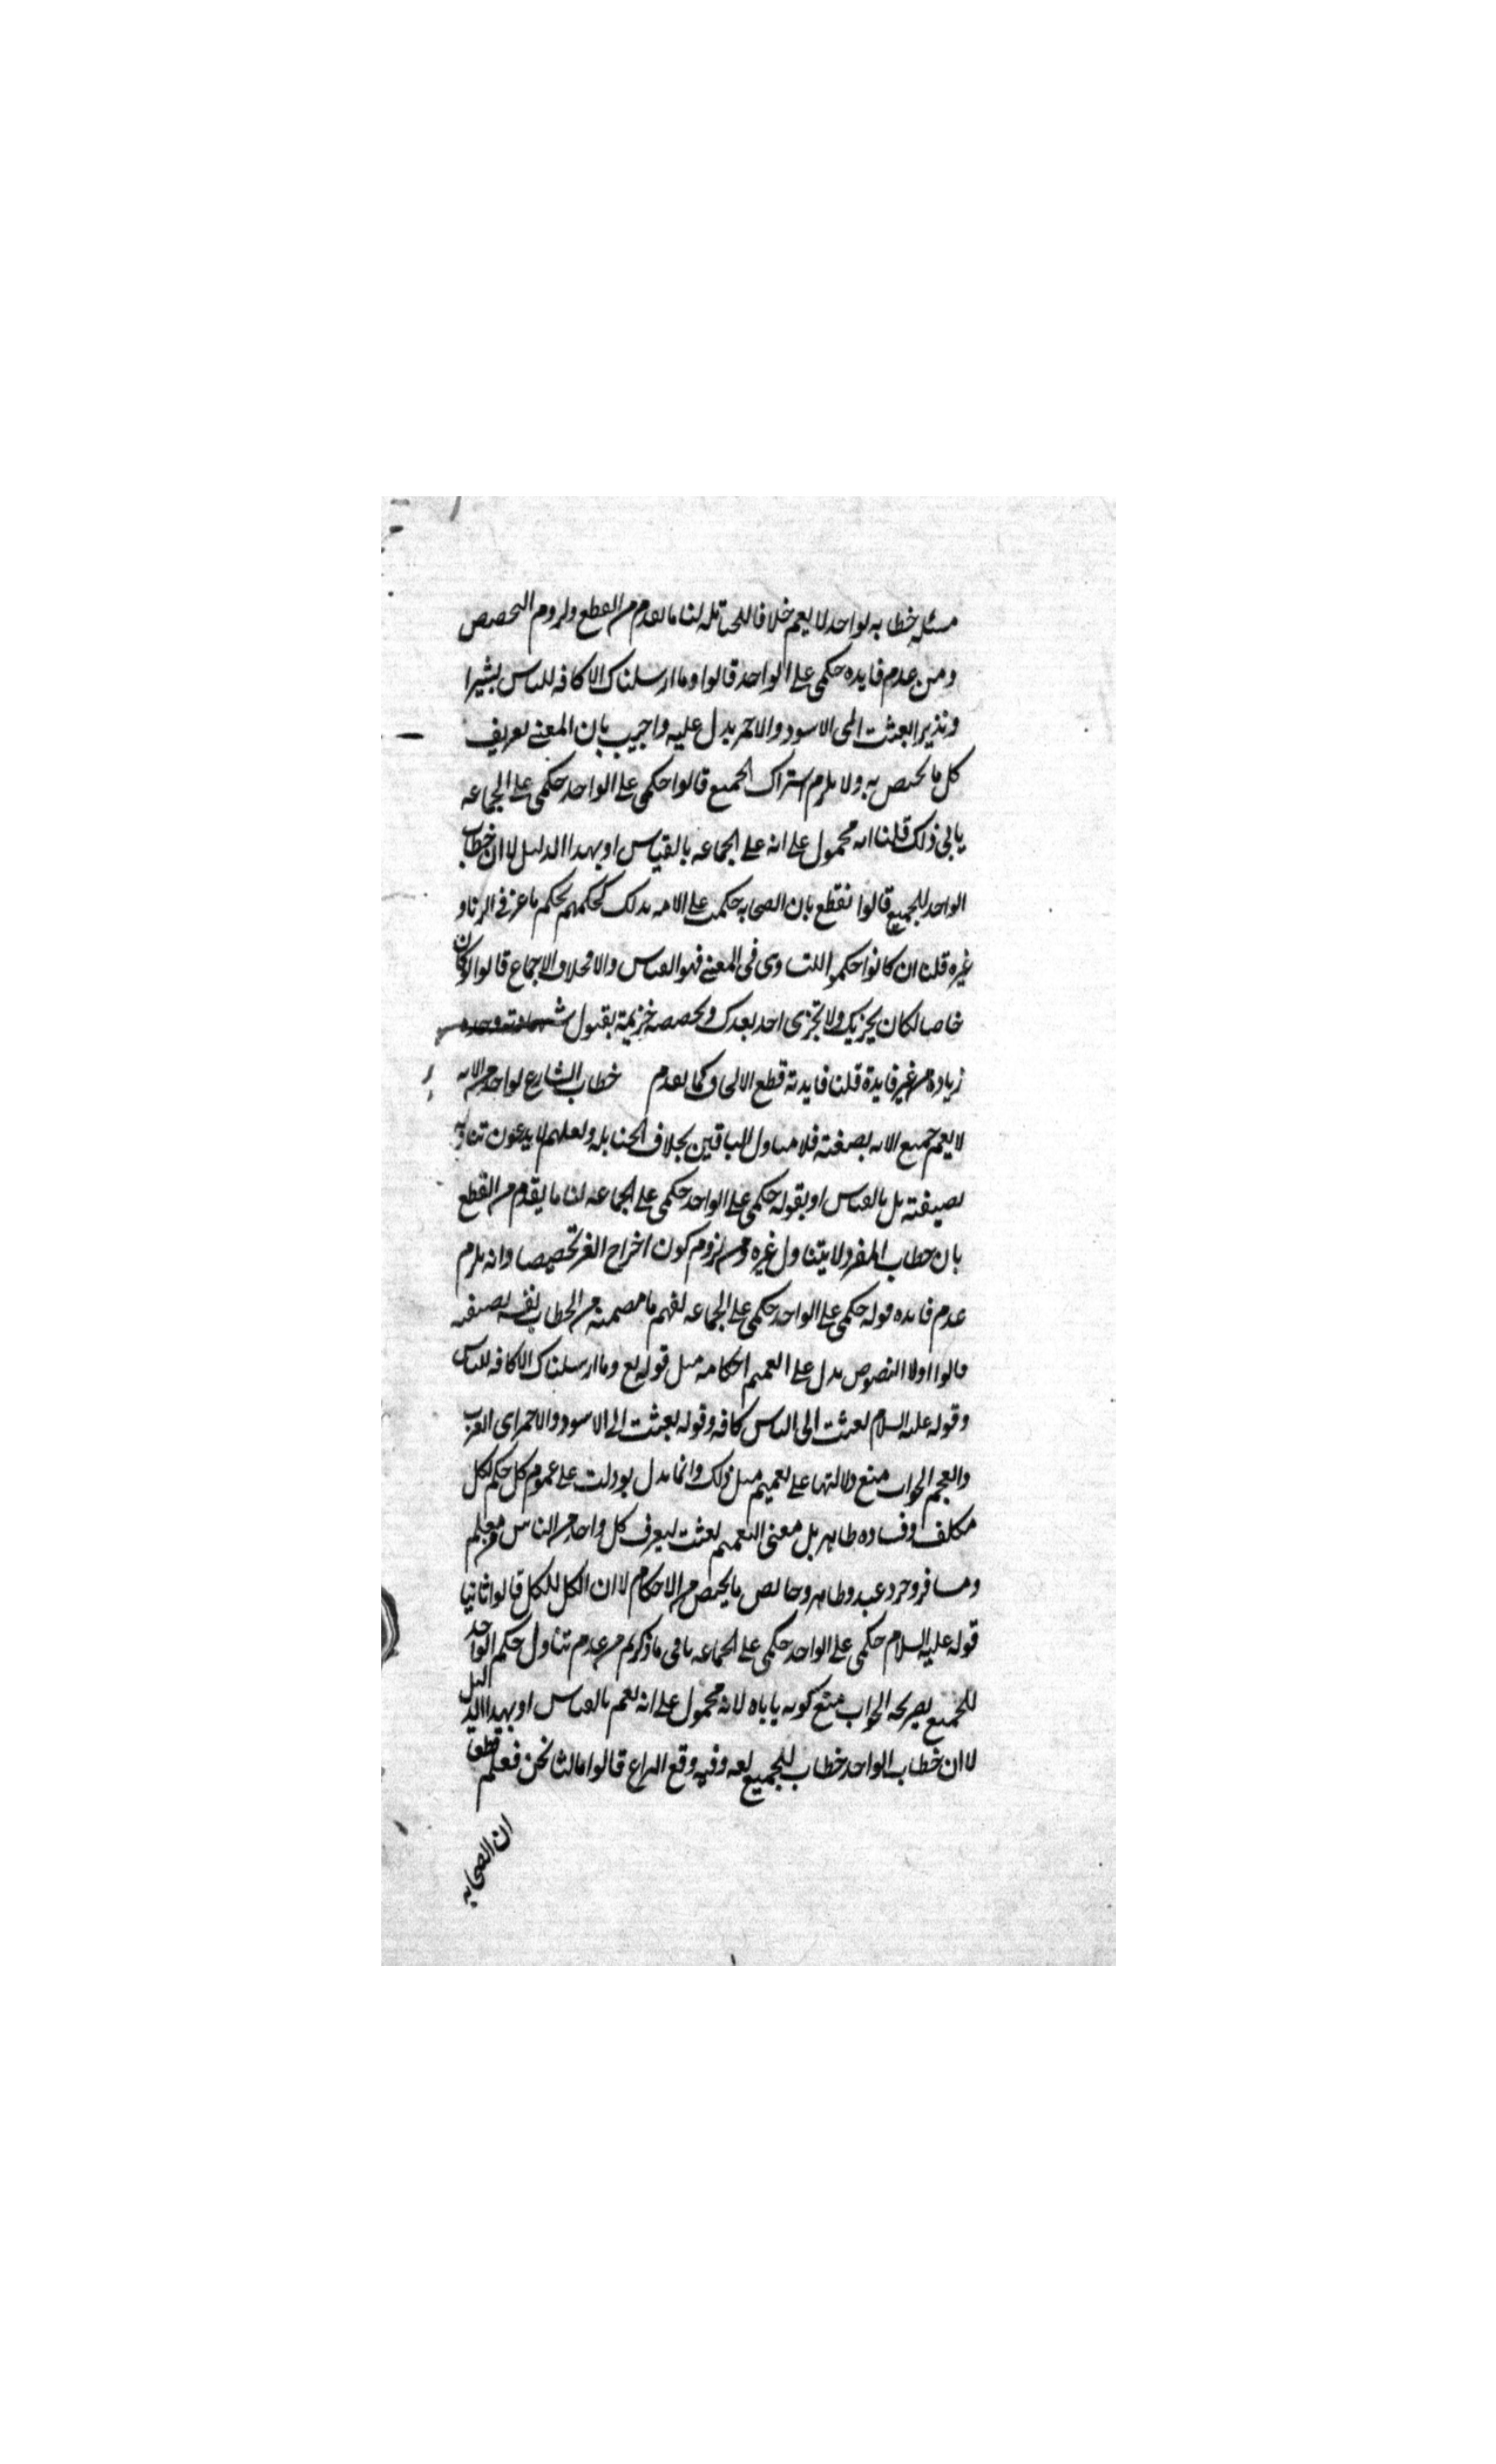 مسئله خطابه لواحد لا يعم خلافا للحنابلة لنا ما تقدم من القطع ولزوم التخصيص
ومن عدم فايده حكمى على الواحد قالوا وما ارسلناك الا كافه للناس بشيرا
ونذيرا بعثت الى الاسود والاحمر يدل عليه واجيب بان المعنى تعريف
كل ما يختص به ولا يلزم اشتراك الجميع قالوا حكمى على الواحد حكمى على الجماعه
يابى ذلك قلنا انه محمول على انه على الجماعه بالقياس او بهذا الدليل لا ان خطاب
الواحد للجميع قالوا نقطع بان الصحابه حكمت على الامه بذلك كحكمهم بحكم ماعز فى الزنا و
غيره قلنا ان كانوا حكموا للتساوى فى المعنى فهو القياس والا فخلاف الاجماع قالوا لو كان
خاصا لكان يجزيك ولا تجزى احد بعدك وتخصيصه خزيمة بقبول شهادته وحده
زياده من غير فايدة قلنا فايدته قطع الالحاق كما تقدم خطاب الشارع لواحد من الامه
لا يعم جميع الامه بصيغته فلا يتناول الباقين بخلاف الحنابله ولعلهم لا يدعون تناوله
بصيغته بل بالقياس او بقوله حكمى على الواحد حكمى على الجماعه لنا ما يقدم من القطع
بان خطاب المفرد لا يتناول غيره ومن لزوم كون اخراج الغير تخصيصا وانه يلزم
عدم فايده قوله حكمى على الواحد حكمى على الجماعه لفهم ما تضمنه من الخطاب نفسه بصيغته
قالوا اولا النصوص يدل على العميم احكامه مثل قوله تع وما ارسلناك الا كافه للناس
وقوله عليه السلام بعثت الى الناس كافه وقوله بعثت الى الاسود والاحمر اى العرب
والعجم الجواب منع دلالتها على تعميم مثل ذلك وانما يدل لو دلت على عموم كل حكم لكل
مكلف وفساده ظاهر بل معنى التعميم بعثت ليعرف كل واحد من الناس من مقيم
ومسافر وحر وعبد وطاهر وحايض ما يختص من الاحكام لا ان الكل للكل قالوا ثانيا
قوله عليه السلام حكمى على الواحد حكمى على الجماعه يابى ما ذكرتم من عدم تناول حكم الواحد
للجميع بصريحه الجواب منع كونه ياباه لانه محمول على انه يعم بالقياس او بهذا الدليل
لا ان خطاب الواحد خطاب للجميع لغه وفيه وقع النزاع قالوا ثالثا نحن نعلم قطعا
ان الصحابه